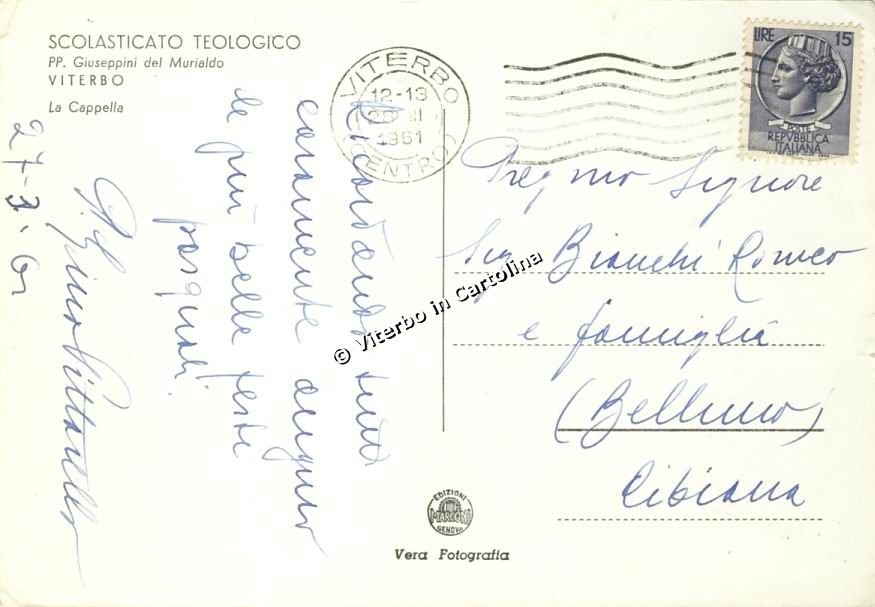 SCOLASTICATO TEOLOGICO
PP. Giuseppini del Murialdo
VITERBO
La Cappella
VITERBO
12-13
1961
(CENTRO)
LIRE 15
POSTE
REPVBBLICA
ITALIANA
Ricordando tutti
caramente auguro
le più belle feste
pasquali.
27-3-61
Pregmo Signore
Sig. Bianchi Romeo
e famiglia
(Belluno)
Cibiana
© Viterbo in Cartolina
EDIZIONI
MARCONI
GENOVA
Vera Fotografia